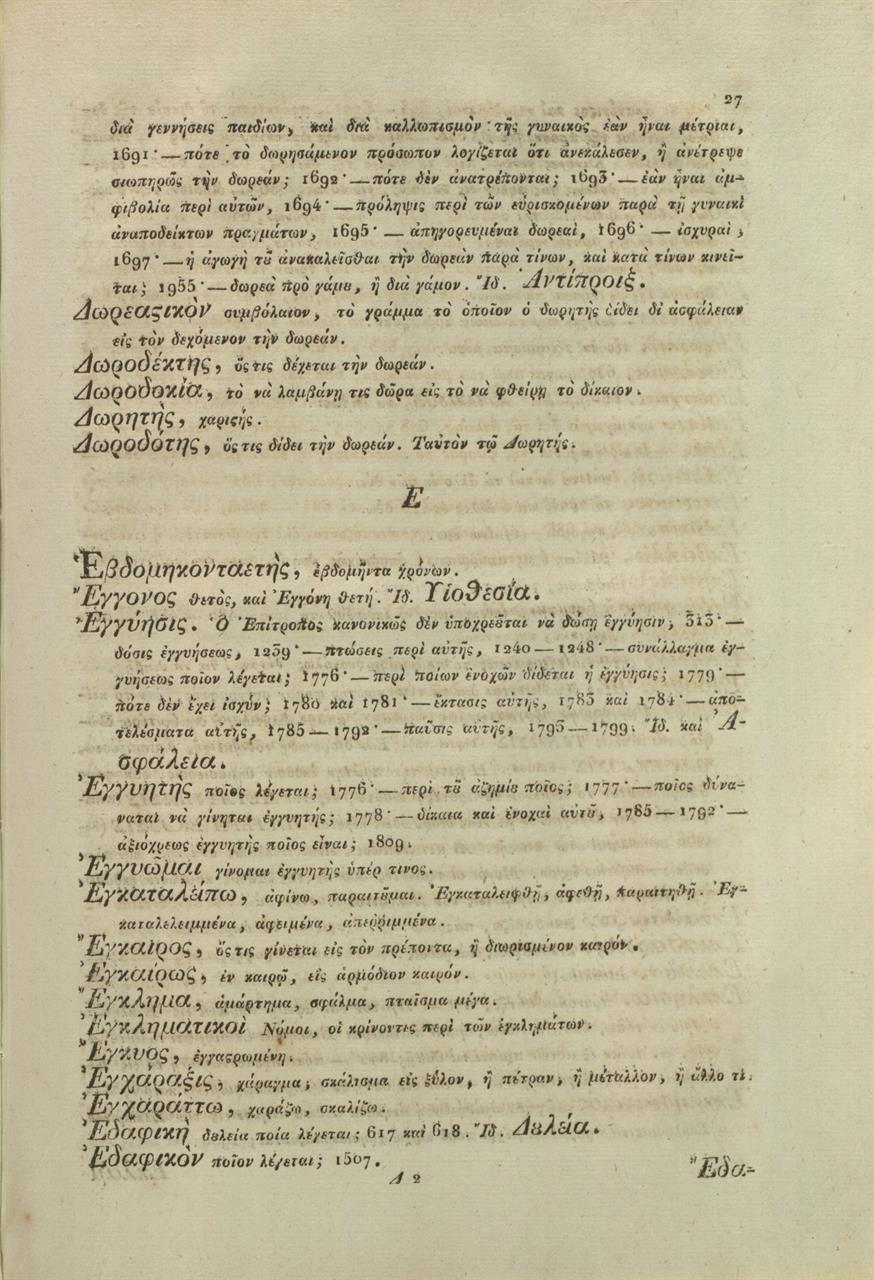 27
διὰ γεννήσεις παιδίων, καὶ διὰ καλλωπισμὸν τῆς γυναικὸς ἐὰν ἦναι μέτριαι,
1691· — πότε τὸ δωρησάμενον πρόσωπον λογίζεται ὅτι ἀνεκάλεσεν, ἢ ἀνέτρεψε
σιωπηρῶς τὴν δωρεάν; 1692· — πότε δὲν ἀνατρέπονται; 1693· — ἐὰν ἦναι ἀμ-
φιβολία περὶ αὐτῶν, 1694· — πρόληψις περὶ τῶν εὑρισκομένων παρὰ τῇ γυναικὶ
ἀναποδείκτων πραγμάτων, 1695· — ἀπηγορευμέναι δωρεαὶ, 1696· — ἰσχυραὶ,
1697· — ἡ ἀγωγὴ τȣ͂ ἀνακαλεῖσθαι τὴν δωρεὰν παρὰ τίνων, καὶ κατὰ τίνων κινεῖ-
ται; 1955· — δωρεὰ πρὸ γάμȣ, ἢ διὰ γάμον. Ἴδ. Ἀντίπροιξ.
Δωρεαϛικὸν συμβόλαιον, τὸ γράμμα τὸ ὁποῖον ὁ δωρητὴς δίδει δι' ἀσφάλειαν
εἰς τὸν δεχόμενον τὴν δωρεάν.
Δωροδέκτης, ὅςτις δέχεται τὴν δωρεάν.
Δωροδοκία, τὸ νὰ λαμβάνῃ τις δῶρα εἰς τὸ νὰ φθείρῃ τὸ δίκαιον.
Δωρητὴς, χαριϛής.
Δωροδότης, ὅςτις δίδει τὴν δωρεάν. Ταὐτὸν τῷ Δωρητής.
Ε
Ἑβδομηκονταετὴς, ἑβδομῆντα χρόνων.
Ἔγγονος θετὸς, καὶ Ἐγγόνη θετή. Ἴδ. Υἱοθεσία.
Ἐγγύησις. Ὁ Ἐπίτροπος κανονικῶς δὲν ὑποχρεȣ͂ται νὰ δώσῃ ἐγγύησιν, 313· —
δόσις ἐγγυήσεως, 1239· — πτώσεις περὶ αὐτῆς, 1240 — 1248· — συνάλλαγμα ἐγ-
γυήσεως ποῖον λέγεται; 1776· — περὶ ποίων ἐνοχῶν δίδεται ἡ ἐγγύησις; 1779· —
πότε δὲν ἔχει ἰσχύν; 1780 καὶ 1781· — ἔκτασις αὐτῆς, 1783 καὶ 1784· — ἀπο-
τελέσματα αὐτῆς, 1785 — 1792· — παῦσις αὐτῆς, 1793 — 1799. Ἴδ. καὶ Ἀ-
σφάλεια.
Ἐγγυητὴς ποῖος λέγεται; 1776· — περὶ τȣ͂ ἀζημίȣ ποῖος; 1777· — ποῖος δύνα-
ναται νὰ γίνηται ἐγγυητής; 1778· — δίκαια καὶ ἐνοχαὶ αὐτȣ͂, 1785 — 1792· —
ἀξιόχρεως ἐγγυητὴς ποῖος εἶναι; 1809.
Ἐγγυῶμαι γίνομαι ἐγγυητὴς ὑπέρ τινος.
Ἐγκαταλείπω, ἀφίνω, παραιτȣ͂μαι. Ἐγκαταλειφθῇ, ἀφεθῇ, παραιτηθῇ. Ἐγ-
καταλελειμμένα, ἀφειμένα, ἀπεῤῥιμμένα.
Ἔγκαιρος, ὅςτις γίνεται εἰς τὸν πρέποντα, ἢ διωρισμένον καιρόν.
Ἐγκαίρως, ἐν καιρῷ, εἰς ἁρμόδιον καιρόν.
Ἔγκλημα, ἁμάρτημα, σφάλμα, πταῖσμα μέγα.
Ἐγκληματικοὶ Νόμοι, οἱ κρίνοντες περὶ τῶν ἐγκλημάτων.
Ἔγκυος, ἐγγαϛρωμένη.
Ἐγχάραξις, χάραγμα, σκάλισμα εἰς ξύλον, ἢ πέτραν, ἢ μέταλλον, ἢ ἄλλο τι.
Ἐγχαράττω, χαράζω, σκαλίζω.
Ἐδαφικὴ δȣλεία ποία λέγεται; 617 καὶ 618. Ἴδ. Δȣλεία.
Ἐδαφικὸν ποῖον λέγεται; 1507.
Δ 2
Ἔδα-